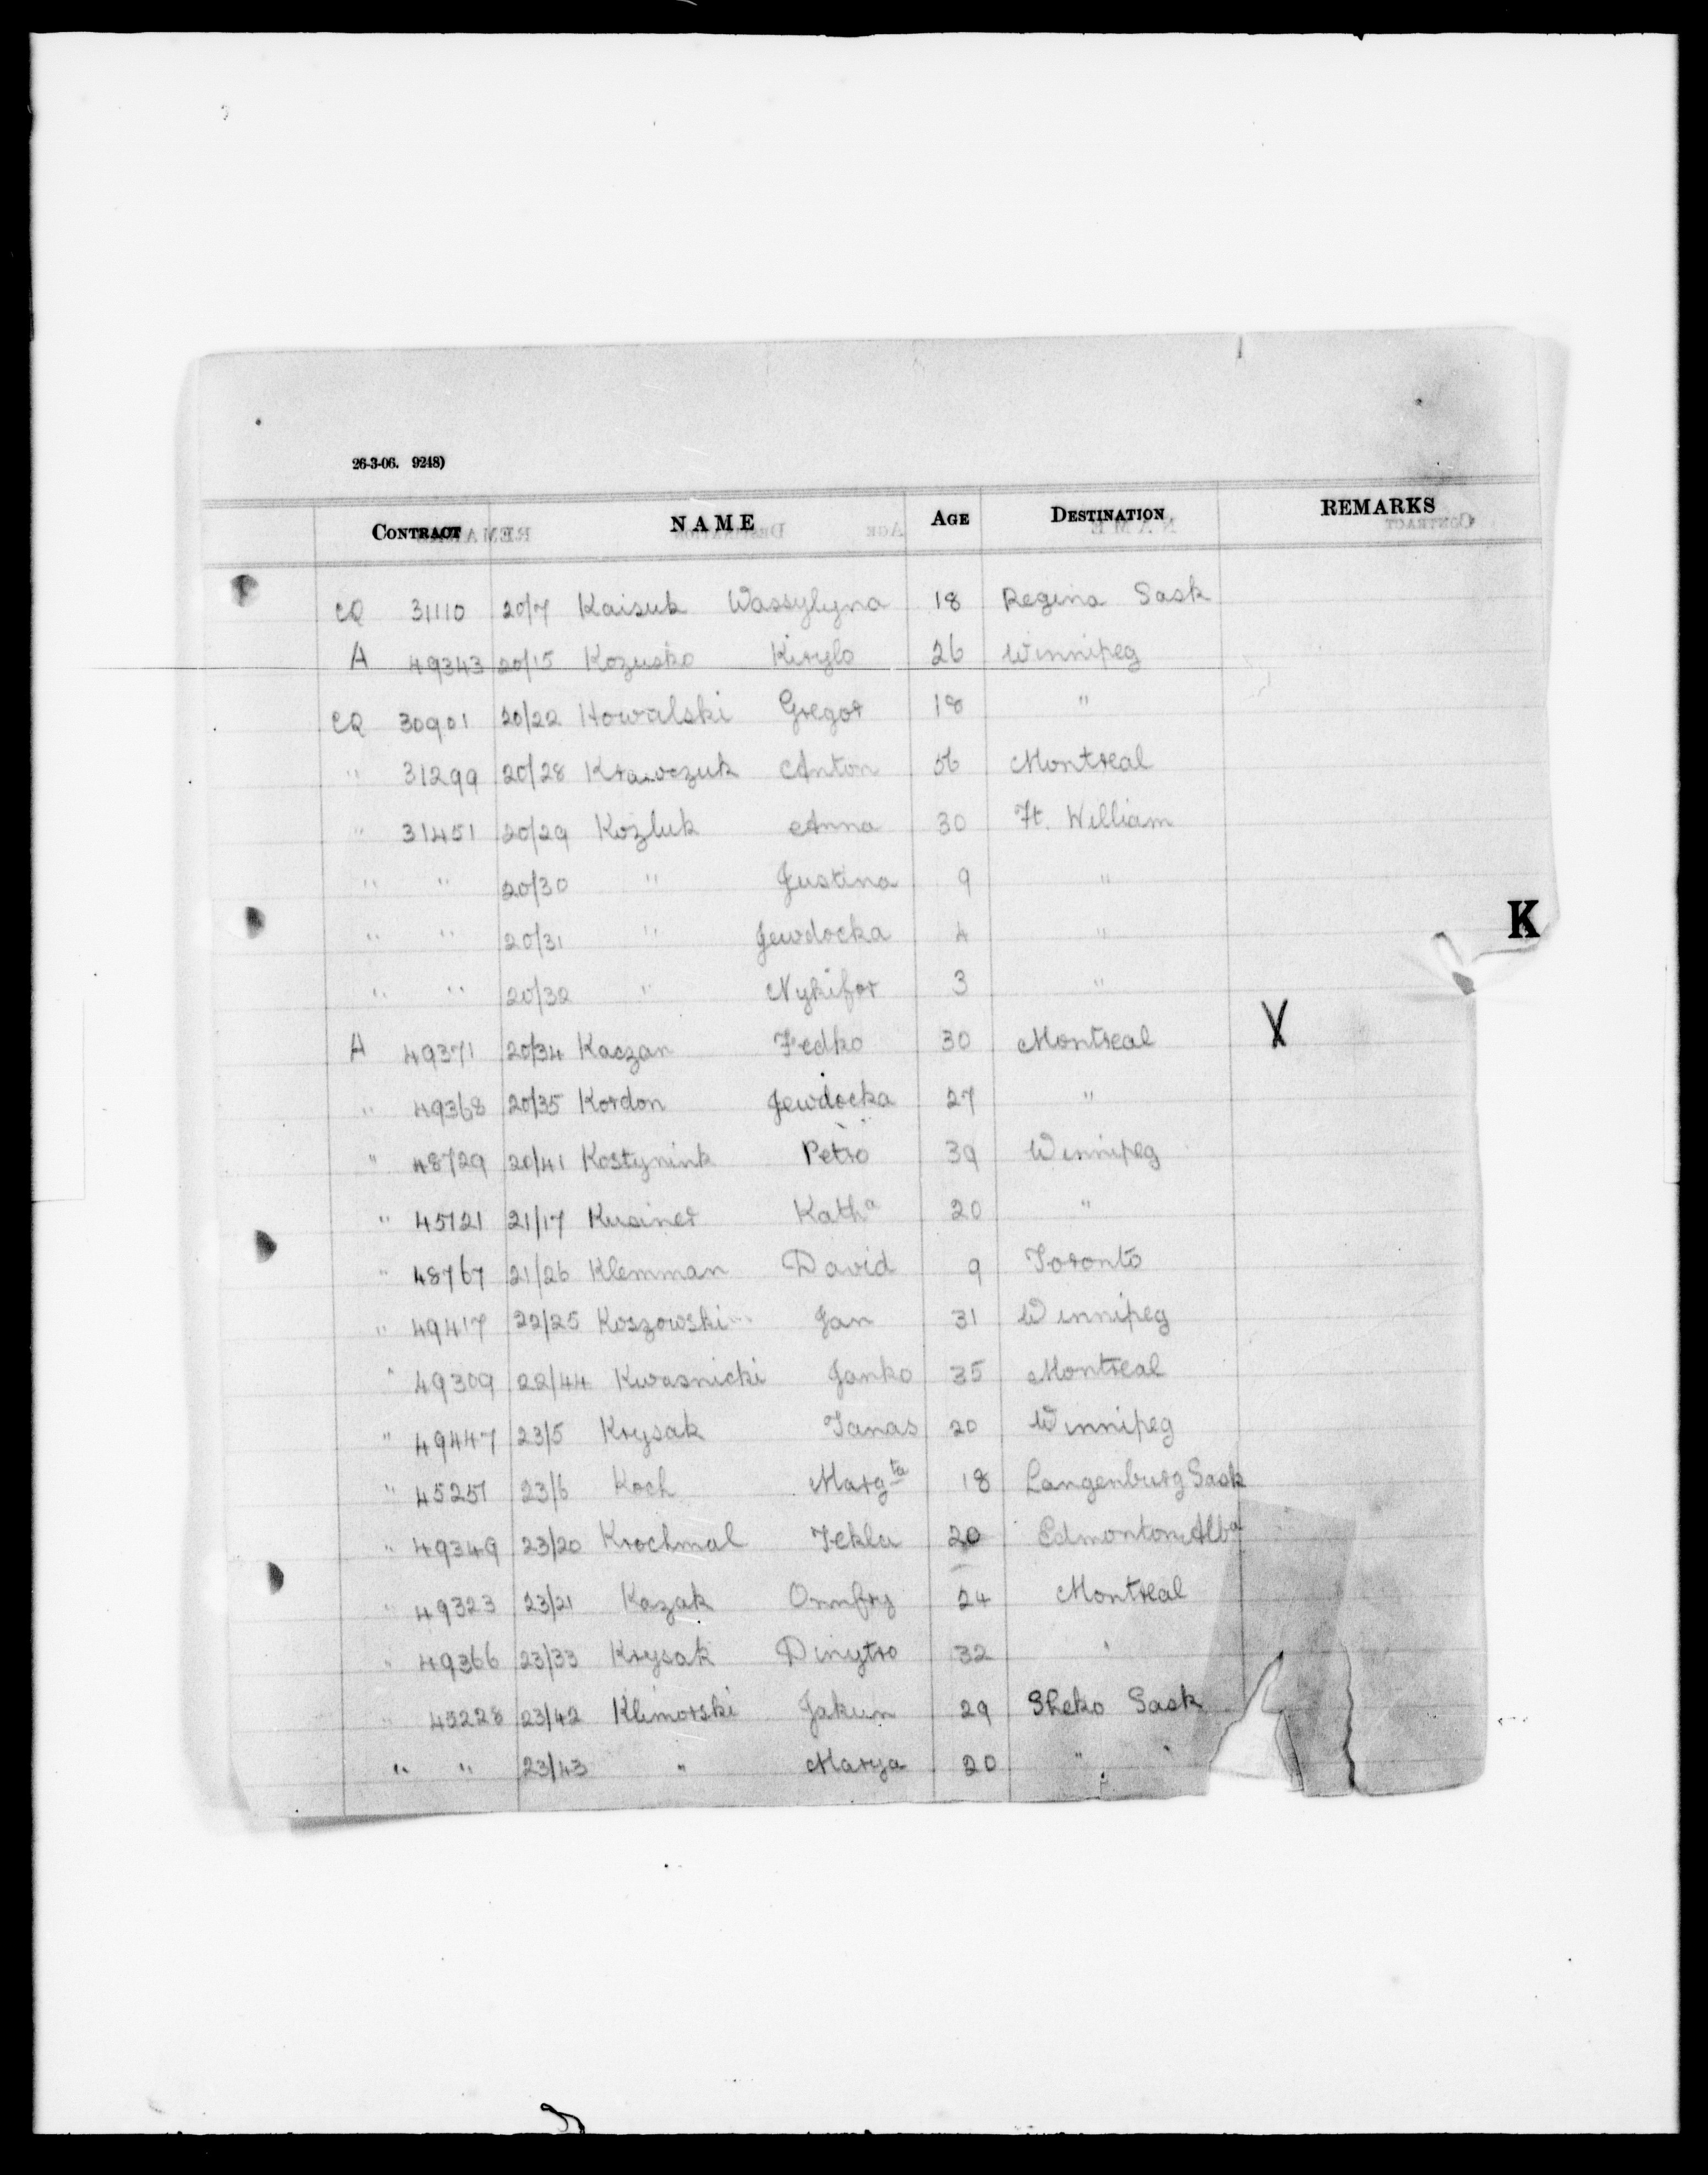 26-3-06. 9248)
CONTRACT NAME AGE DESTINATION REMARKS
CQ 31110 20/7 Kaisuk Wassylyna 18 Regina Sask
A 49343 20/15 Kozusko Kirylo 26 Winnipeg
CQ 30901 20/22 Howalski Gregor 18 "
" 31299 20/28 Krawczuk Anton 56 Montreal
" 31451 20/29 Kozluk Anna 30 Ft. William
" " 20/30 " Justina 9 "
" " 20/31 " Jewdocka 4 "
K
" " 20/32 " Nykifor 3 "
A 49371 20/34 Kaczan Fedko 30 Montreal X
" 49368 20/35 Kordon Jewdocka 27 "
" 48729 20/41 Kostynink Petro 39 Winnipeg
" 45121 21/17 Kusiner Katha 20 "
" 48767 21/26 Klemman David 9 Toronto
" 49417 22/25 Koszowski Jan 31 Winnipeg
" 49309 22/44 Kwasnicki Janko 35 Montreal
" 49447 23/5 Krysak Tanas 20 Winnipeg
" 45251 23/6 Koch Margta 18 Langenburg Sask
" 49349 23/20 Krochmal Tekla 20 Edmonton Alba
" 49323 23/21 Kozak Onnfry 24 Montreal
" 49366 23/33 Krysak Dinytro 32 "
" 45228 23/42 Klimorski Jakun 29 Sheko Sask
" " 23/43 " Marya 20 "